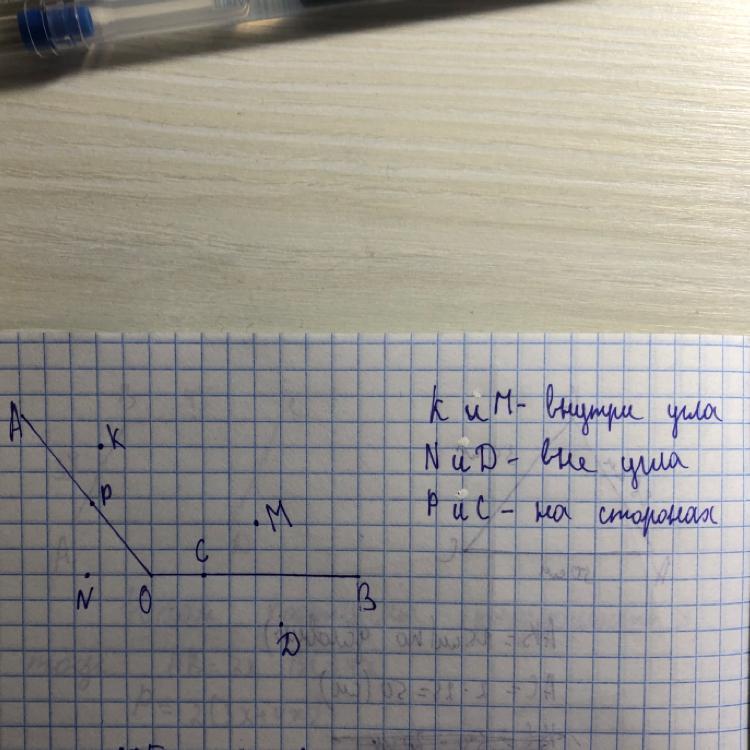 K и M - внутри угла
N и D - вне угла
P и C - на сторонах
A
K
P
M
C
N
O
B
D